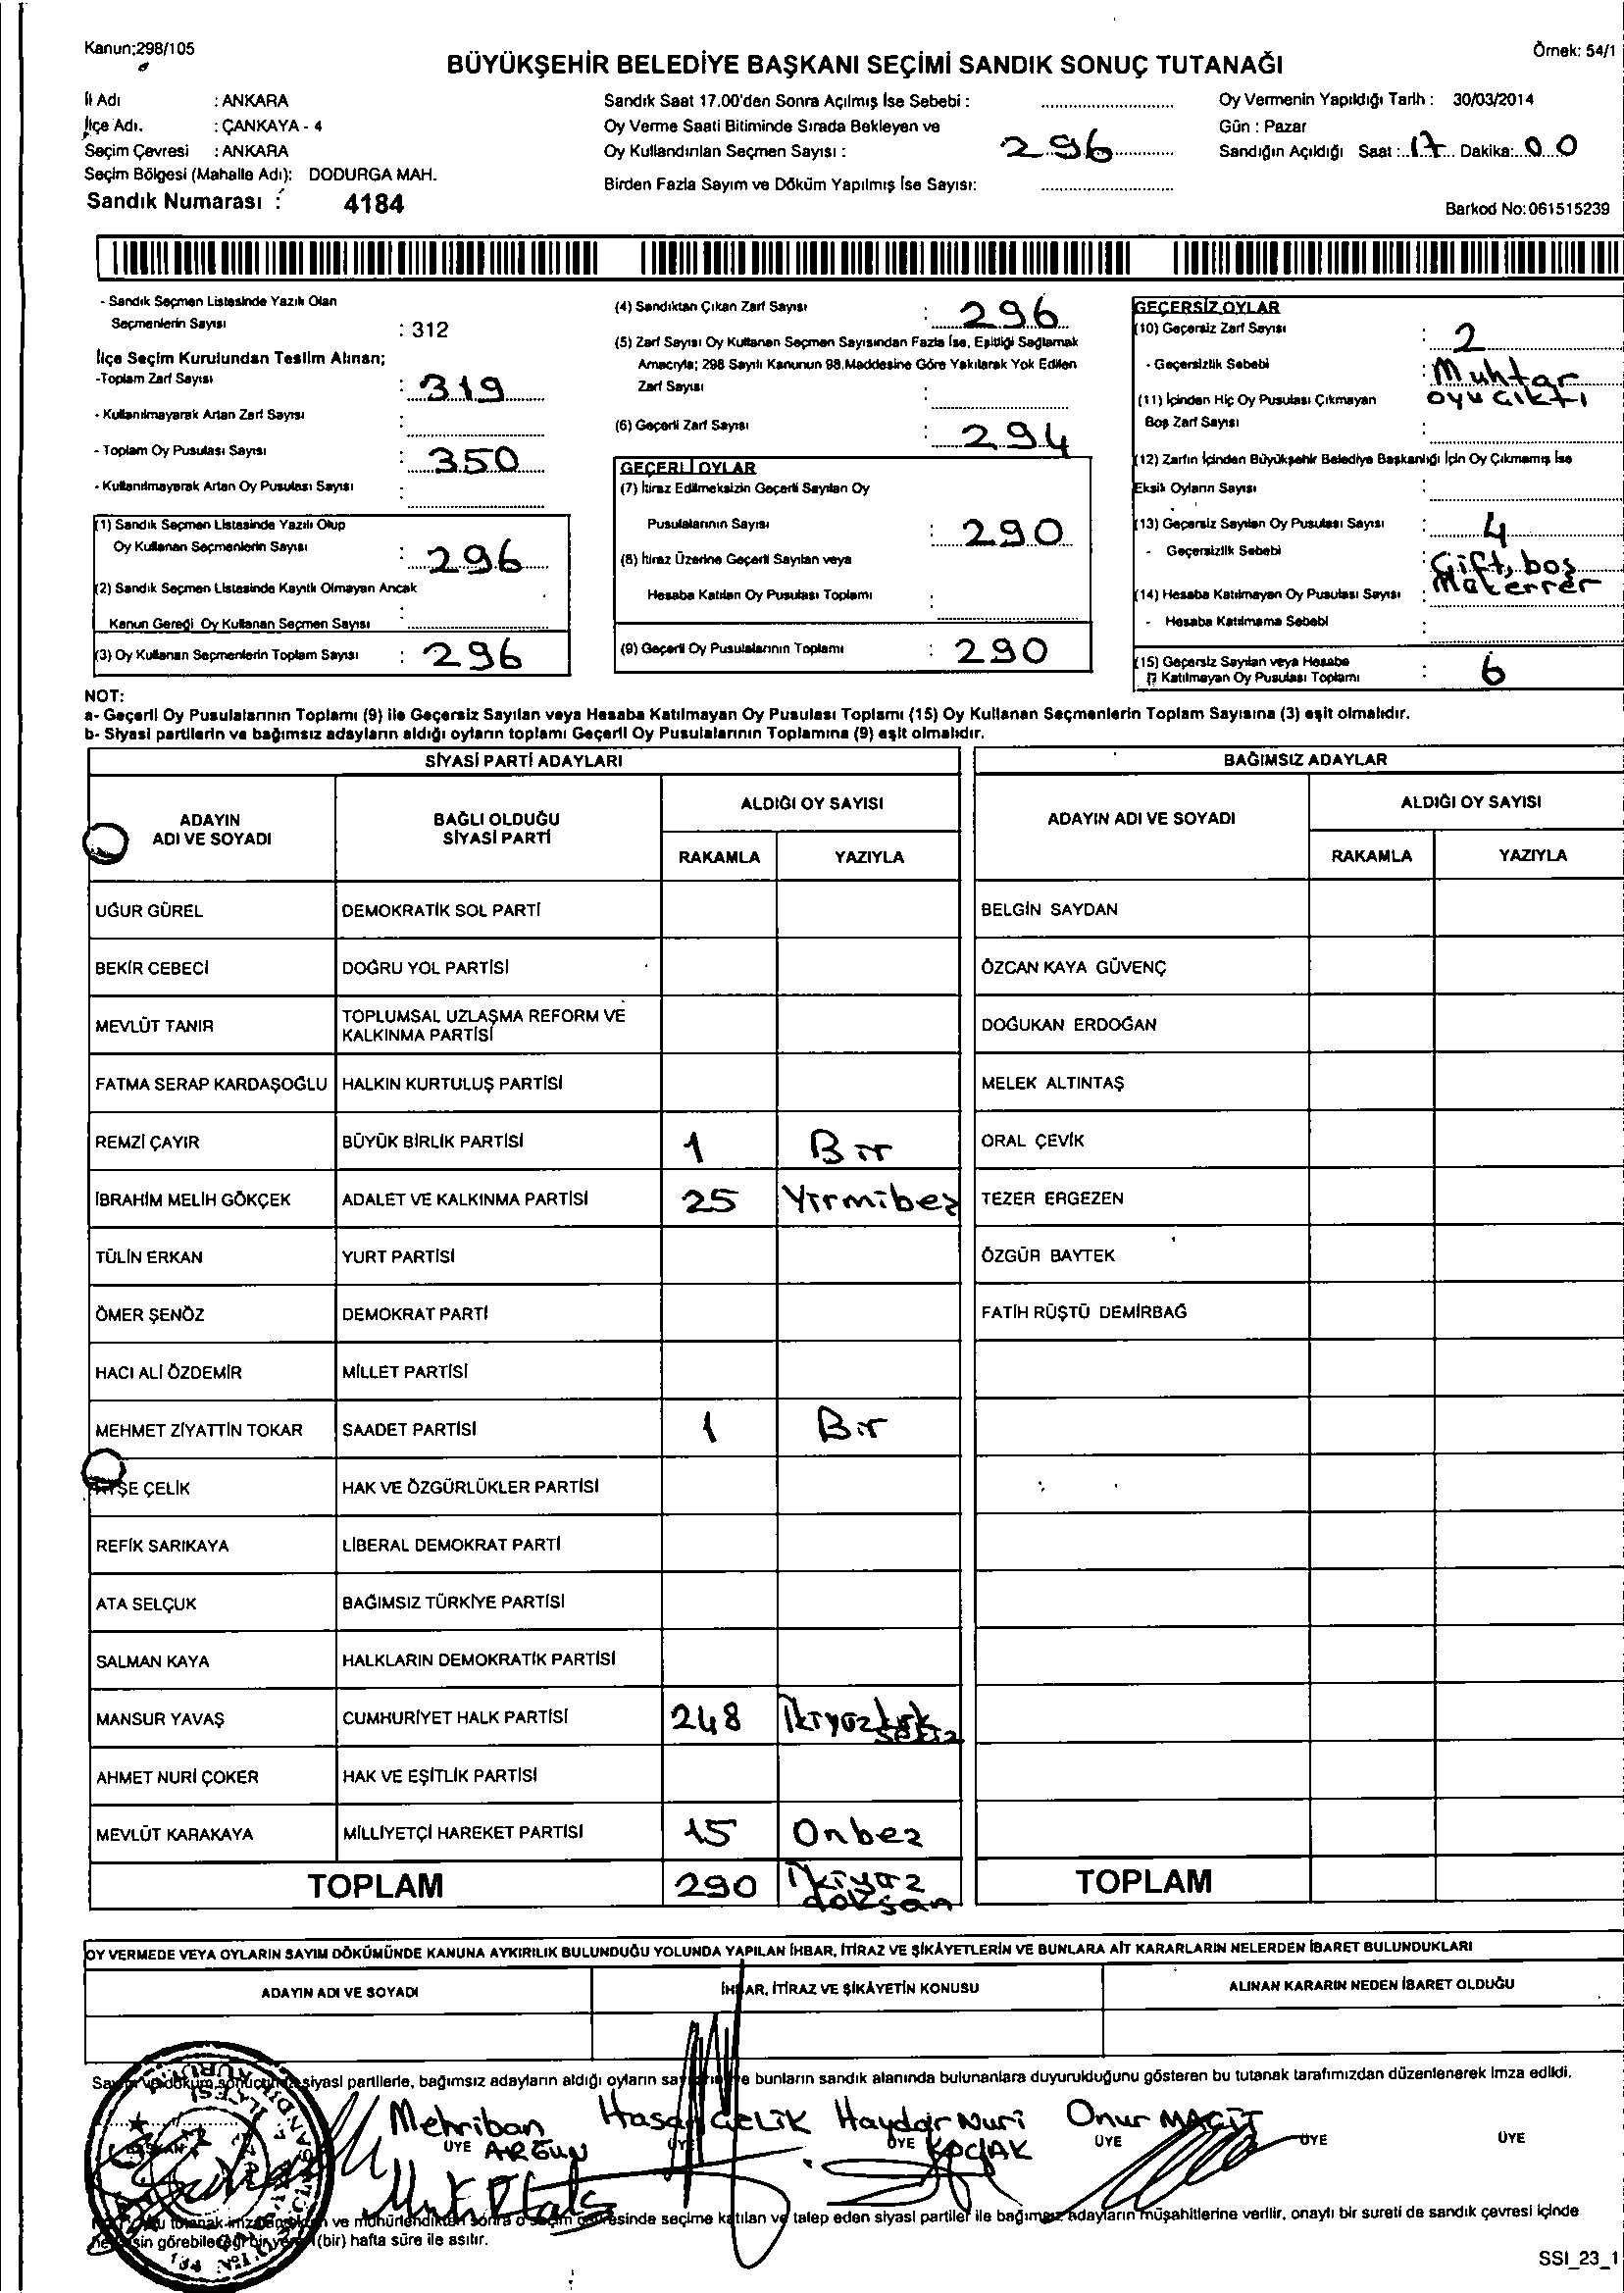 Kanun;298/105
Örnek: 54/1
BÜYÜKŞEHİR BELEDİYE BAŞKANI SEÇİMİ SANDIK SONUÇ TUTANAĞI
İl Adı : ANKARA
İlçe Adı. : ÇANKAYA - 4
Seçim Çevresi : ANKARA
Seçim Bölgesi (Mahalle Adı): DODURGA MAH.
Sandık Numarası : 4184
Sandık Saat 17.00'den Sonra Açılmış İse Sebebi :
Oy Verme Saati Bitiminde Sırada Bekleyen ve
Oy Kullandırılan Seçmen Sayısı : 296
Birden Fazla Sayım ve Döküm Yapılmış İse Sayısı:
Oy Vermenin Yapıldığı Tarih : 30/03/2014
Gün : Pazar
Sandığın Açıldığı Saat : 17 Dakika: 00
Barkod No:061515239
- Sandık Seçmen Listesinde Yazılı Olan
Seçmenlerin Sayısı : 312
İlçe Seçim Kurulundan Teslim Alınan;
-Toplam Zarf Sayısı : 319
- Kullanılmayarak Artan Zarf Sayısı :
- Toplam Oy Pusulası Sayısı : 350
- Kullanılmayarak Artan Oy Pusulası Sayısı :
(1) Sandık Seçmen Listesinde Yazılı Olup
Oy Kullanan Seçmenlerin Sayısı : 296
(2) Sandık Seçmen Listesinde Kayıtlı Olmayan Ancak
Kanun Gereği Oy Kullanan Seçmen Sayısı :
(3) Oy Kullanan Seçmenlerin Toplam Sayısı : 296
(4) Sandıktan Çıkan Zarf Sayısı : 296
(5) Zarf Sayısı Oy Kullanan Seçmen Sayısından Fazla İse, Eşitliği Sağlamak
Amacıyla; 298 Sayılı Kanunun 98.Maddesine Göre Yakılarak Yok Edilen
Zarf Sayısı :
(6) Geçerli Zarf Sayısı : 294
GEÇERLİ OYLAR
(7) İtiraz Edilmeksizin Geçerli Sayılan Oy
Pusulalarının Sayısı : 290
(8) İtiraz Üzerine Geçerli Sayılan veya
Hesaba Katılan Oy Pusulası Toplamı :
(9) Geçerli Oy Pusulalarının Toplamı : 290
GEÇERSİZ OYLAR
(10) Geçersiz Zarf Sayısı : 2
- Geçersizlik Sebebi : Muhtar
oyu çıktı
(11) İçinden Hiç Oy Pusulası Çıkmayan
Boş Zarf Sayısı :
(12) Zarfın İçinden Büyükşehir Belediye Başkanlığı İçin Oy Çıkmamış İse
Eksik Oyların Sayısı :
(13) Geçersiz Sayılan Oy Pusulası Sayısı : 4
- Geçersizlik Sebebi : Çift, boş
(14) Hesaba Katılmayan Oy Pusulası Sayısı :
- Hesaba Katılmama Sebebi :
(15) Geçersiz Sayılan veya Hesaba
Katılmayan Oy Pusulası Toplamı : 6
NOT:
a- Geçerli Oy Pusulalarının Toplamı (9) ile Geçersiz Sayılan veya Hesaba Katılmayan Oy Pusulası Toplamı (15) Oy Kullanan Seçmenlerin Toplam Sayısına (3) eşit olmalıdır.
b- Siyasi partilerin ve bağımsız adayların aldığı oyların toplamı Geçerli Oy Pusulalarının Toplamına (9) eşit olmalıdır.
SİYASİ PARTİ ADAYLARI
ADAYIN ADI VE SOYADI
BAĞLI OLDUĞU SİYASİ PARTİ
ALDIĞI OY SAYISI
RAKAMLA YAZIYLA
UĞUR GÜREL DEMOKRATİK SOL PARTİ
BEKİR CEBECİ DOĞRU YOL PARTİSİ
MEVLÜT TANIR TOPLUMSAL UZLAŞMA REFORM VE KALKINMA PARTİSİ
FATMA SERAP KARDAŞOĞLU HALKIN KURTULUŞ PARTİSİ
REMZİ ÇAYIR BÜYÜK BİRLİK PARTİSİ 1 Bir
İBRAHİM MELİH GÖKÇEK ADALET VE KALKINMA PARTİSİ 25 Yirmibeş
TÜLİN ERKAN YURT PARTİSİ
ÖMER ŞENÖZ DEMOKRAT PARTİ
HACI ALİ ÖZDEMİR MİLLET PARTİSİ
MEHMET ZİYATTİN TOKAR SAADET PARTİSİ 1 Bir
AYŞE ÇELİK HAK VE ÖZGÜRLÜKLER PARTİSİ
REFİK SARIKAYA LİBERAL DEMOKRAT PARTİ
ATA SELÇUK BAĞIMSIZ TÜRKİYE PARTİSİ
SALMAN KAYA HALKLARIN DEMOKRATİK PARTİSİ
MANSUR YAVAŞ CUMHURİYET HALK PARTİSİ 248 İkiyüzkırk
sekiz
AHMET NURİ ÇOKER HAK VE EŞİTLİK PARTİSİ
MEVLÜT KARAKAYA MİLLİYETÇİ HAREKET PARTİSİ 15 Onbeş
TOPLAM 290 İkiyüz
doksan
BAĞIMSIZ ADAYLAR
ADAYIN ADI VE SOYADI
ALDIĞI OY SAYISI
RAKAMLA YAZIYLA
BELGİN SAYDAN
ÖZCAN KAYA GÜVENÇ
DOĞUKAN ERDOĞAN
MELEK ALTINTAŞ
ORAL ÇEVİK
TEZER ERGEZEN
ÖZGÜR BAYTEK
FATİH RÜŞTÜ DEMİRBAĞ
TOPLAM
OY VERMEDE VEYA OYLARIN SAYIM DÖKÜMÜNDE KANUNA AYKIRILIK BULUNDUĞU YOLUNDA YAPILAN İHBAR, İTİRAZ VE ŞİKÂYETLERİN VE BUNLARA AİT KARARLARIN NELERDEN İBARET BULUNDUKLARI
ADAYIN ADI VE SOYADI
İHBAR, İTİRAZ VE ŞİKÂYETİN KONUSU
ALINAN KARARIN NEDEN İBARET OLDUĞU
siyasi partilerle, bağımsız adayların aldığı oyların bunların sandık alanında bulunanlara duyurulduğunu gösteren bu tutanak tarafımızdan düzenlenerek imza edildi.
Mehriban ARGUN Hasan ÇELİK Haydar Nuri KOÇAK Onur MAGİT
BAŞKAN ÜYE ÜYE ÜYE ÜYE ÜYE ÜYE
ve mühürlendikten sonra o seçim çevresinde seçime katılan ve talep eden siyasi partiler ile bağımsız adayların müşahitlerine verilir, onaylı bir sureti de sandık çevresi içinde
(bir) hafta süre ile asılır.
SSI_23_1